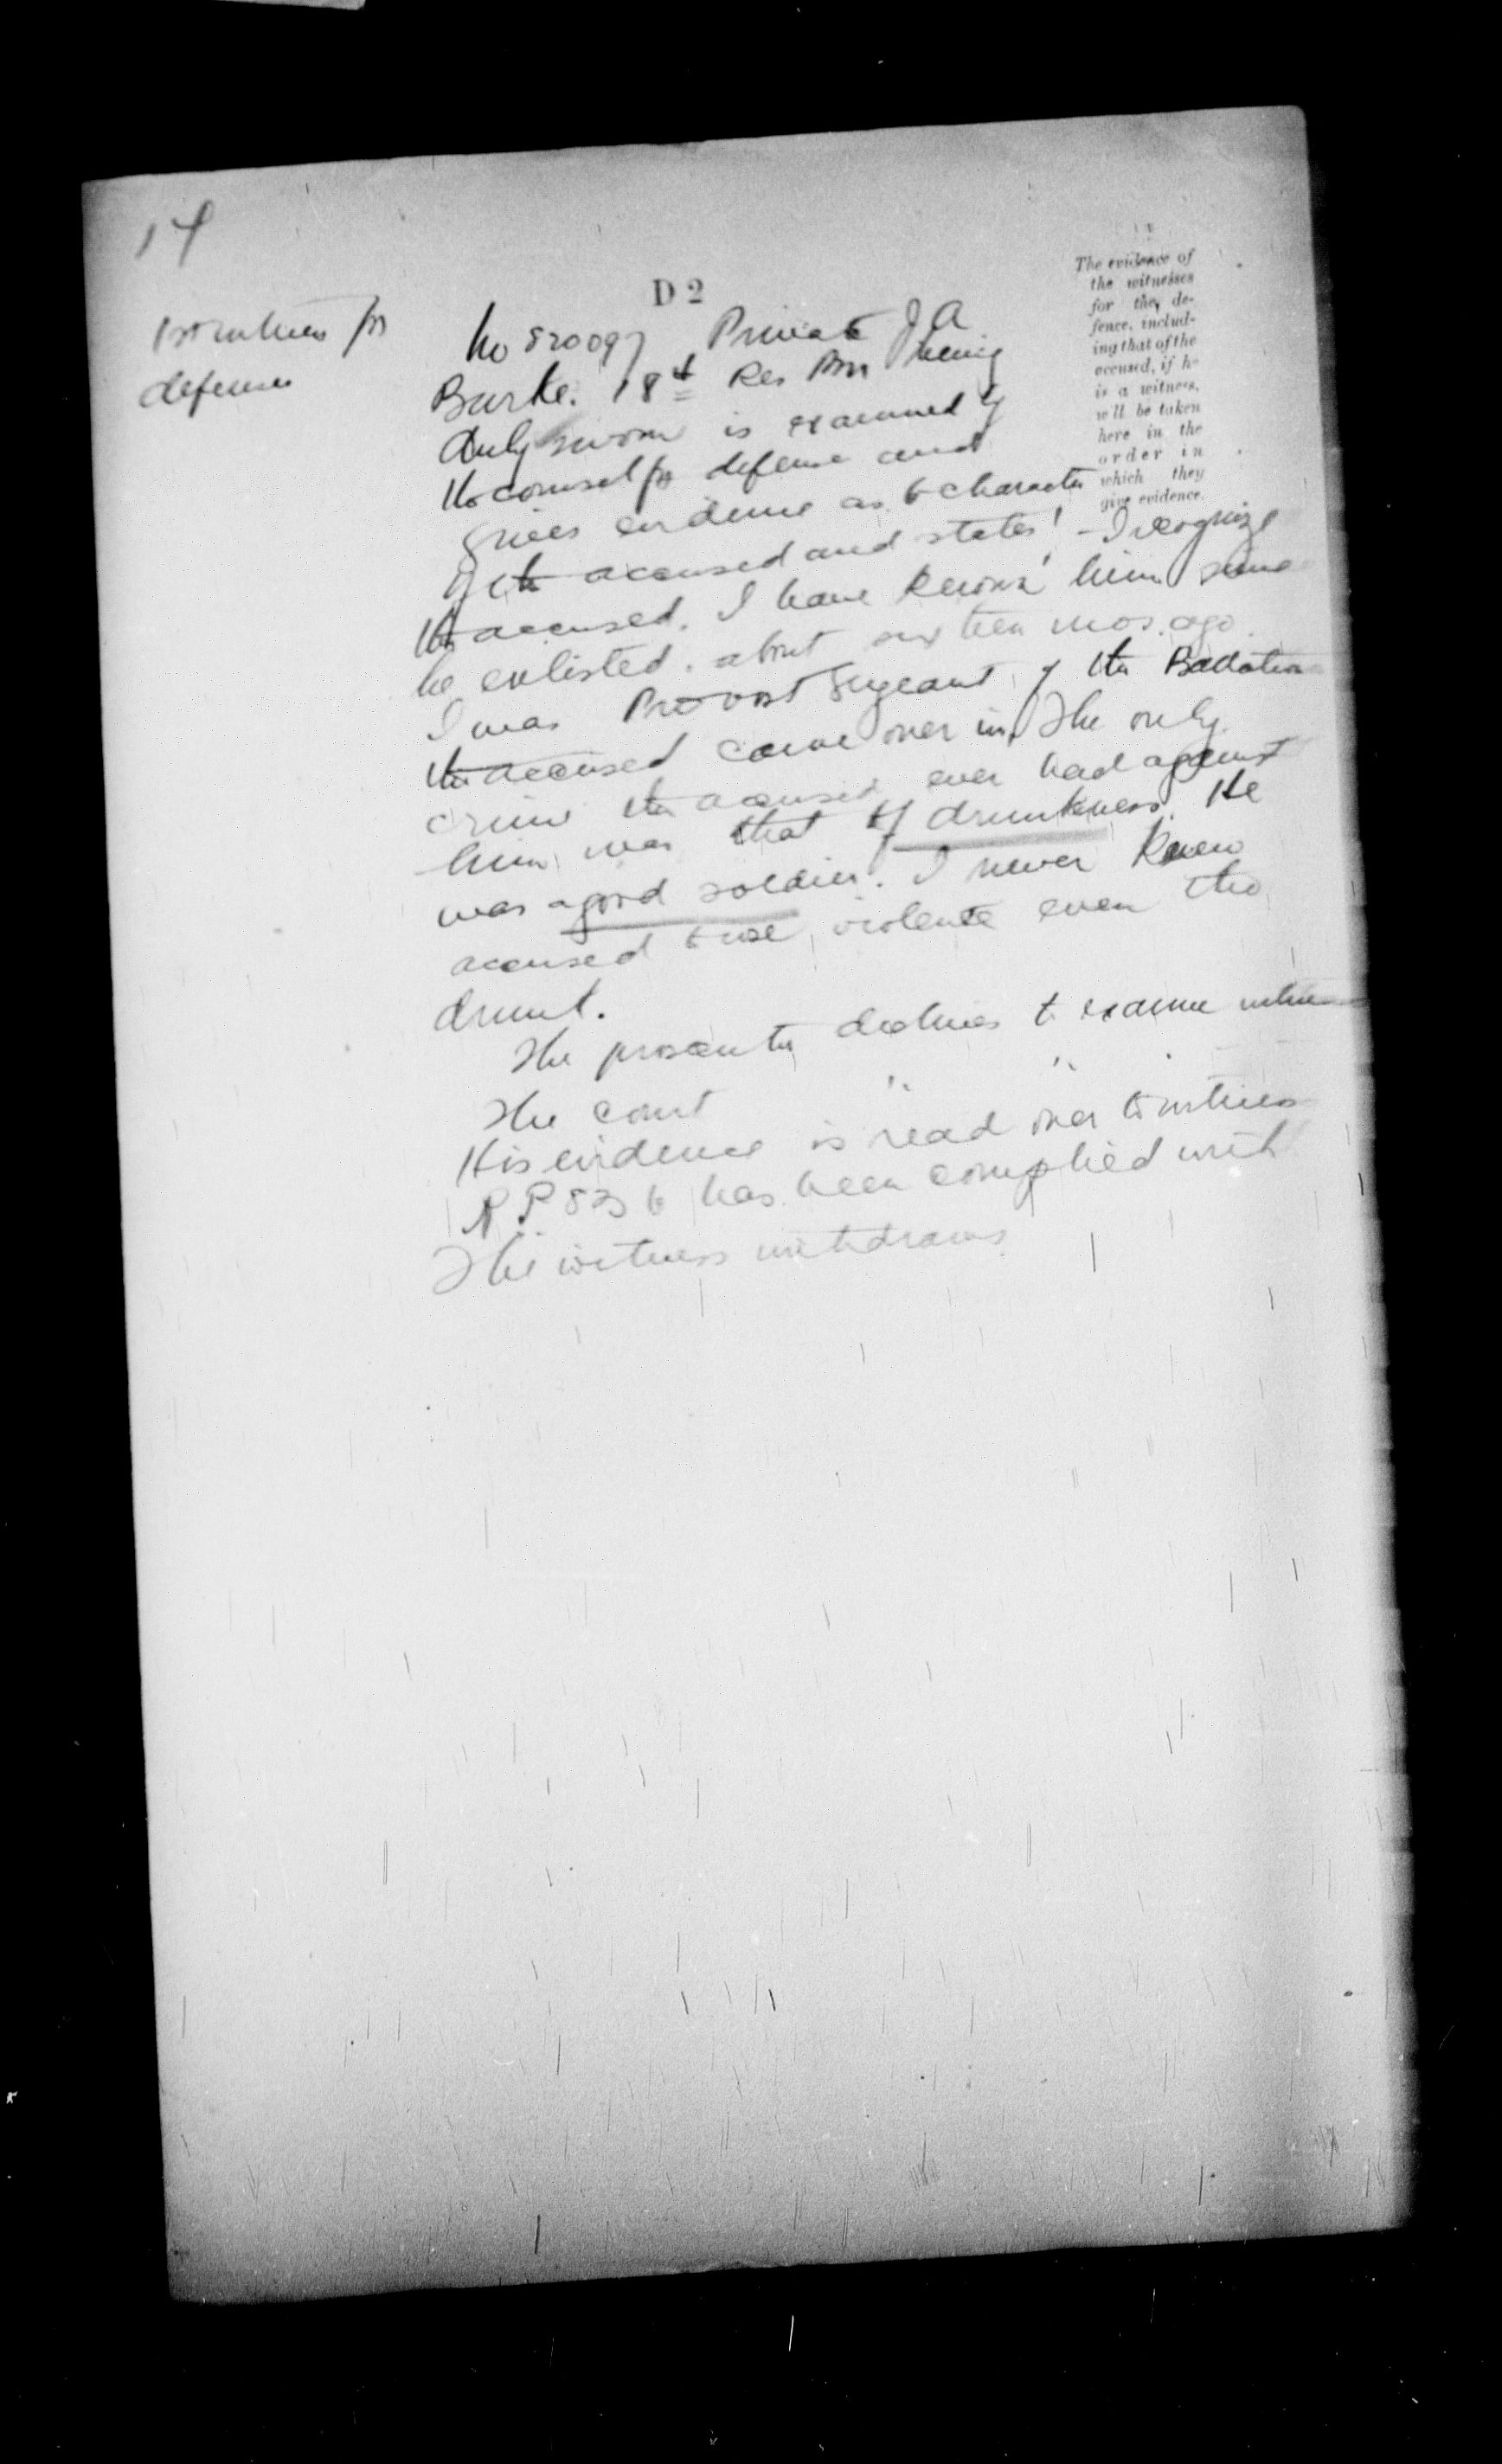 14
D 2
The evidence of
the witnesses
for the de-
fence, includ-
ing that of the
accused, if h-
is a witness,
will be taken
here in the
order in
which they
give evidence.
1st witness for
defense
No 820097 Private J A
Burke. 18th Res Bn being
duly sworn is examined by
the counsel for defense and
gives evidence as to character
of the accused and states! - I recognize
the accused. I have known him since
he enlisted. about sixteen mos. ago.
I was Provost Sergeant of the Battalion
the accused came over in. The only
crime the accused ever had against
him was that of drunkness. He
was a good soldier. I never knew
accused to use violence even tho
drunk.
The prosecutor declines to examine witness
The court " "
His evidence is read over to witness
R.P. 83 b has been complied with
The witness withdraws